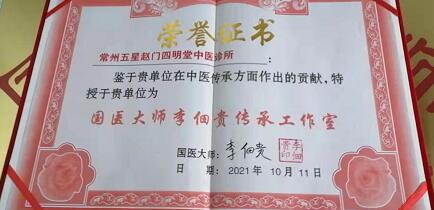 荣誉证书
常州五星赵门四明堂中医诊所
鉴于贵单位在中医传承方面作出的贡献,特
授于贵单位为
国医大师李佃贵传承工作室
国医大师:李佃贵
李佃
贵印
日 期:2021年10月11日